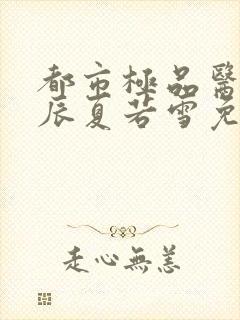 都市極品醫
辰夏若雪免
走心無恙